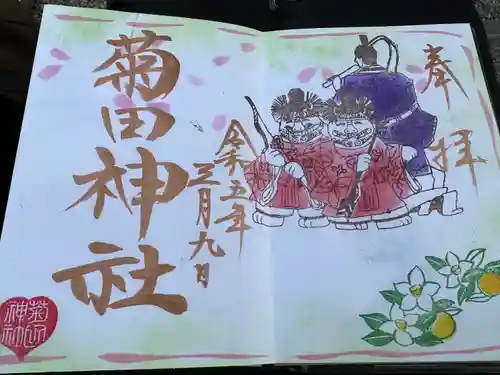 奉拝
令和五年
三月九日
菊田神社
菊田
神社